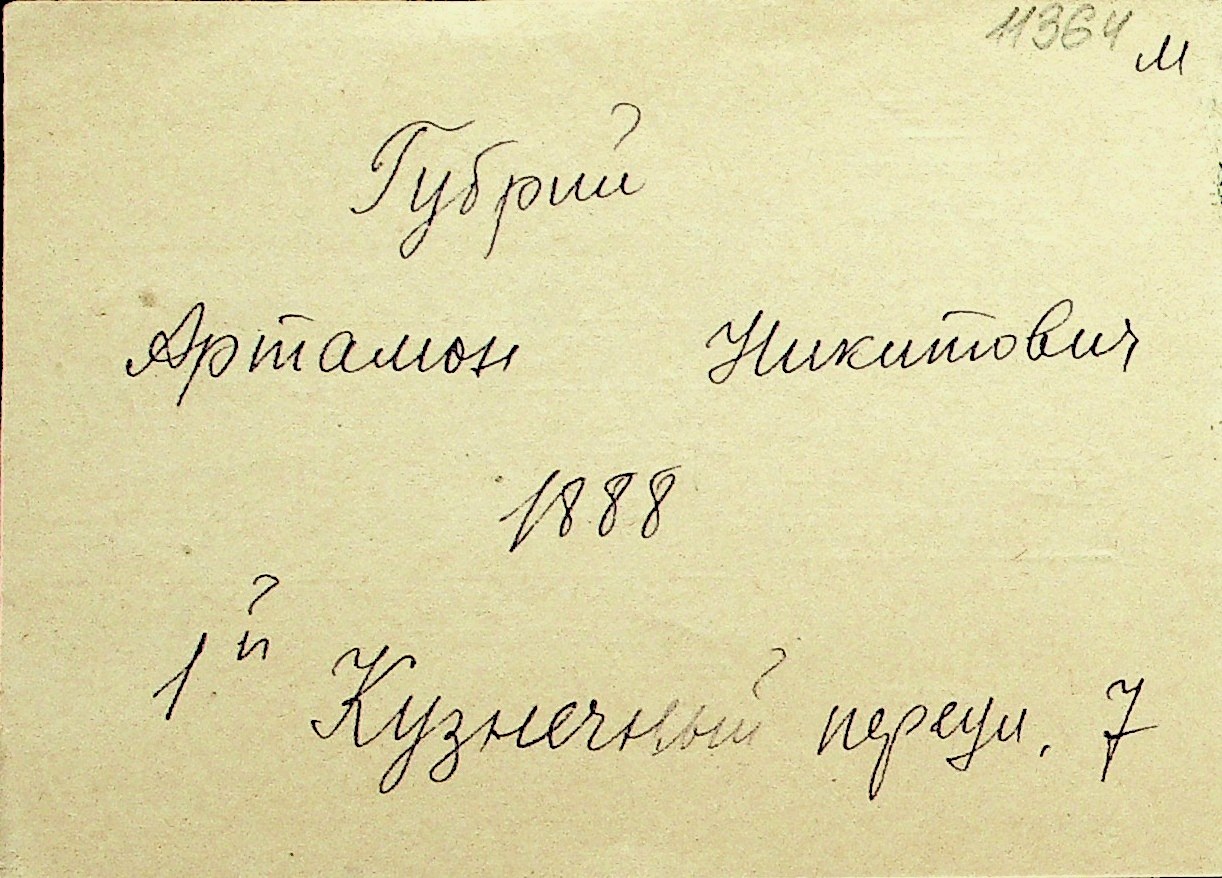 11364 м
Губрий
Артамон Никитович
1888
1й Кузнечный переул. 7